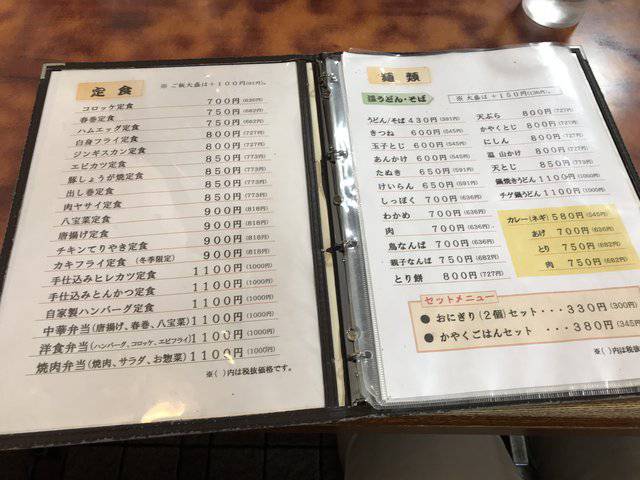 定食
※ ご飯大盛は＋100円(91円)。
コロッケ定食 700円(636円)
春巻定食 750円(682円)
ハムエッグ定食 750円(682円)
白身フライ定食 800円(727円)
ジンギスカン定食 800円(727円)
エビカツ定食 850円(773円)
豚しょうが焼定食 850円(773円)
出し巻定食 850円(773円)
肉ヤサイ定食 900円(818円)
八宝菜定食 900円(818円)
唐揚げ定食 900円(818円)
チキンてりやき定食 900円(818円)
カキフライ定食 (冬季限定) 900円(818円)
手仕込みヒレカツ定食 1100円(1000円)
手仕込みとんかつ定食 1100円(1000円)
自家製ハンバーグ定食 1100円(1000円)
中華弁当(唐揚げ、春巻、八宝菜) 1100円(1000円)
洋食弁当(ハンバーグ、コロッケ、エビフライ) 1100円(1000円)
焼肉弁当(焼肉、サラダ、お惣菜) 1100円(1000円)
※( )内は税抜価格です。
麺類
温うどん・そば
※ 大盛は ＋150円(136円)。
うどん/そば 430円(391円)
きつね 600円(545円)
玉子とじ 600円(545円)
あんかけ 600円(545円)
たぬき 650円(591円)
けいらん 650円(591円)
しっぽく 700円(636円)
わかめ 700円(636円)
肉 700円(636円)
鳥なんば 700円(636円)
親子なんば 750円(682円)
とり餅 800円(727円)
天ぷら 800円(727円)
かやくとじ 800円(727円)
にしん 800円(727円)
温 山かけ 800円(727円)
天とじ 850円(773円)
鍋焼きうどん 1100円(1000円)
チゲ鍋うどん 1100円(1000円)
カレー(ネギ) 580円(545円)
あげ 700円(636円)
とり 750円(682円)
肉 750円(682円)
セットメニュー
● おにぎり(2個)セット・・・330円(300円
● かやくごはんセット・・・380円(345円
※( )内は税抜価格です。